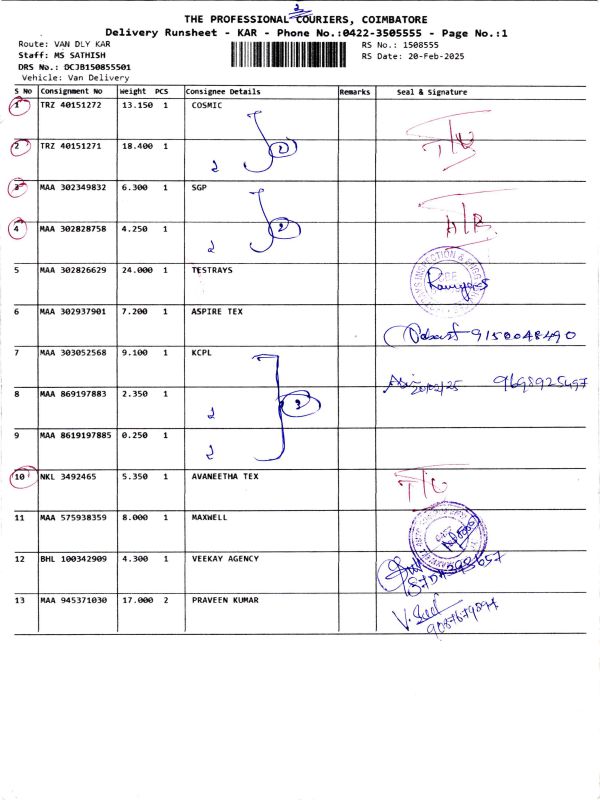 THE PROFESSIONAL COURIERS, COIMBATORE
Delivery Runsheet - KAR - Phone No.:0422-3505555 - Page No.:1
Route: VAN DLY KAR RS No.: 1508555
Staff: MS SATHISH RS Date: 20-Feb-2025
DRS No.: DCJB150855501
Vehicle: Van Delivery
S No Consignment No Weight PCS Consignee Details Remarks Seal & Signature
1 TRZ 40151272 13.150 1 COSMIC
2 TRZ 40151271 18.400 1 2 T/U
3 MAA 302349832 6.300 1 SGP
4 MAA 302828758 4.250 1 2 A/B
5 MAA 302826629 24.000 1 TESTRAYS
6 MAA 302937901 7.200 1 ASPIRE TEX 9150048490
7 MAA 303052568 9.100 1 KCPL 20/02/25 9698925497
8 MAA 869197883 2.350 1 3
9 MAA 8619197885 0.250 1
10 NKL 3492465 5.350 1 AVANEETHA TEX T/U
11 MAA 575938359 8.000 1 MAXWELL
12 BHL 100342909 4.300 1 VEEKAY AGENCY
13 MAA 945371030 17.000 2 PRAVEEN KUMAR